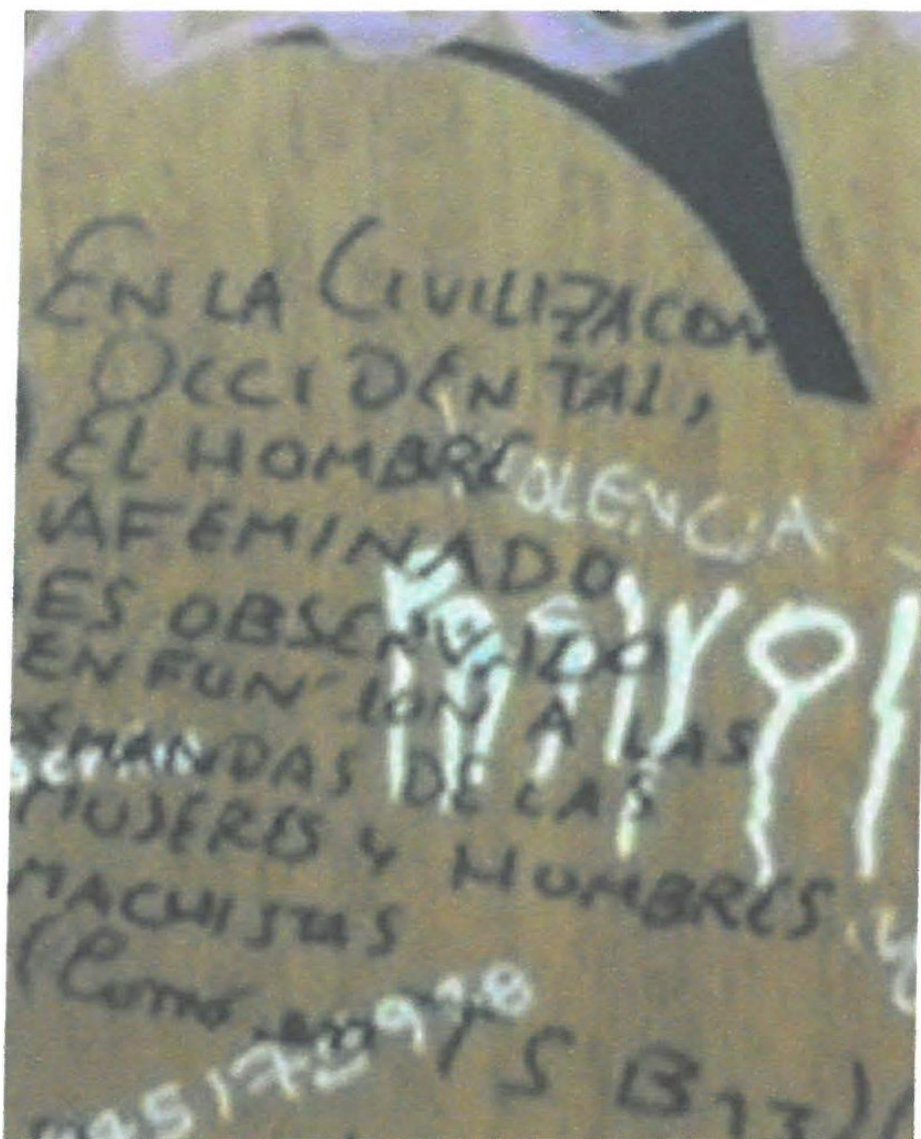 EN LA CIVILIZACON
OCCIDENTAL,
EL HOMBRE
OLENCIA
AFEMINADO
ES OBSERVADO
EN FUN ION A LAS
MANDAS DE LAS
MUJERES Y HOMBRES
MACHISTAS
(Como
S B